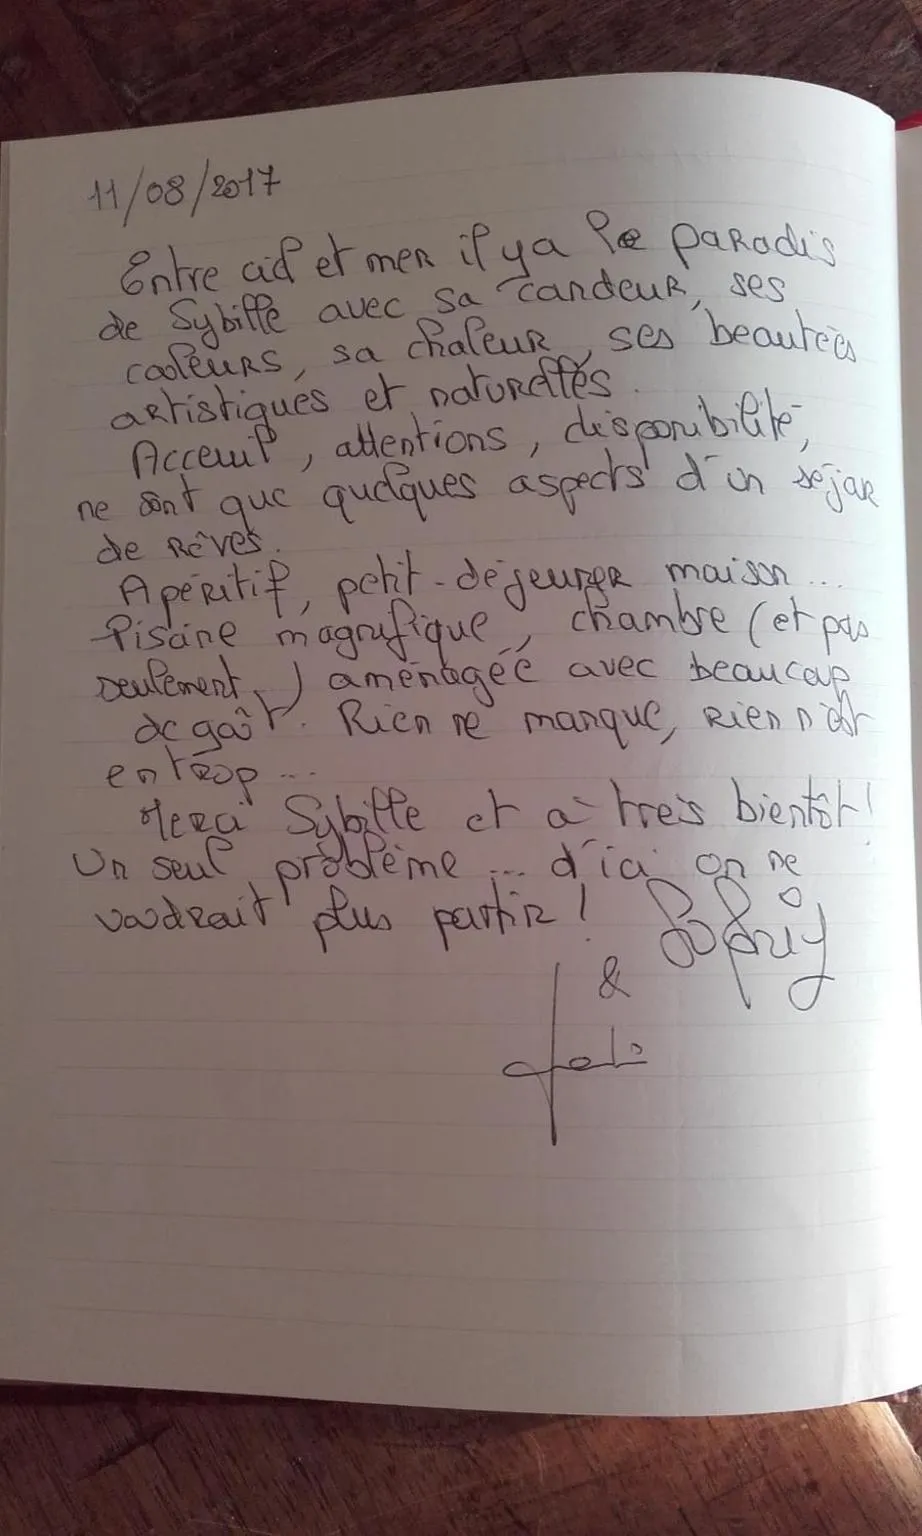 11/08/2017
Entre ciel et mer il y a le paradis
de Sybille avec sa candeur, ses
couleurs, sa chaleur, ses beautées
artistiques et naturelles.
Acceuil, attentions, disponibilité,
ne sont que quelques aspects d'un séjour
de rêves.
Apéritif, petit-déjeuner maison...
Piscine magnifique, chambre (et pas
seulement,) aménagée avec beaucoup
de goût. Rien ne manque, rien n'est
en trop...
Merci Sybille et à très bientôt!
Un seul problème... d'ici on ne
voudrait plus partir!
&